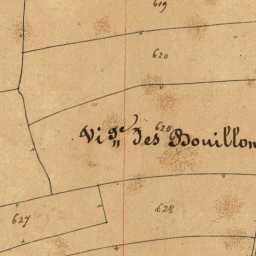 619
620
628
Vig.ne des Bouillon
627
628